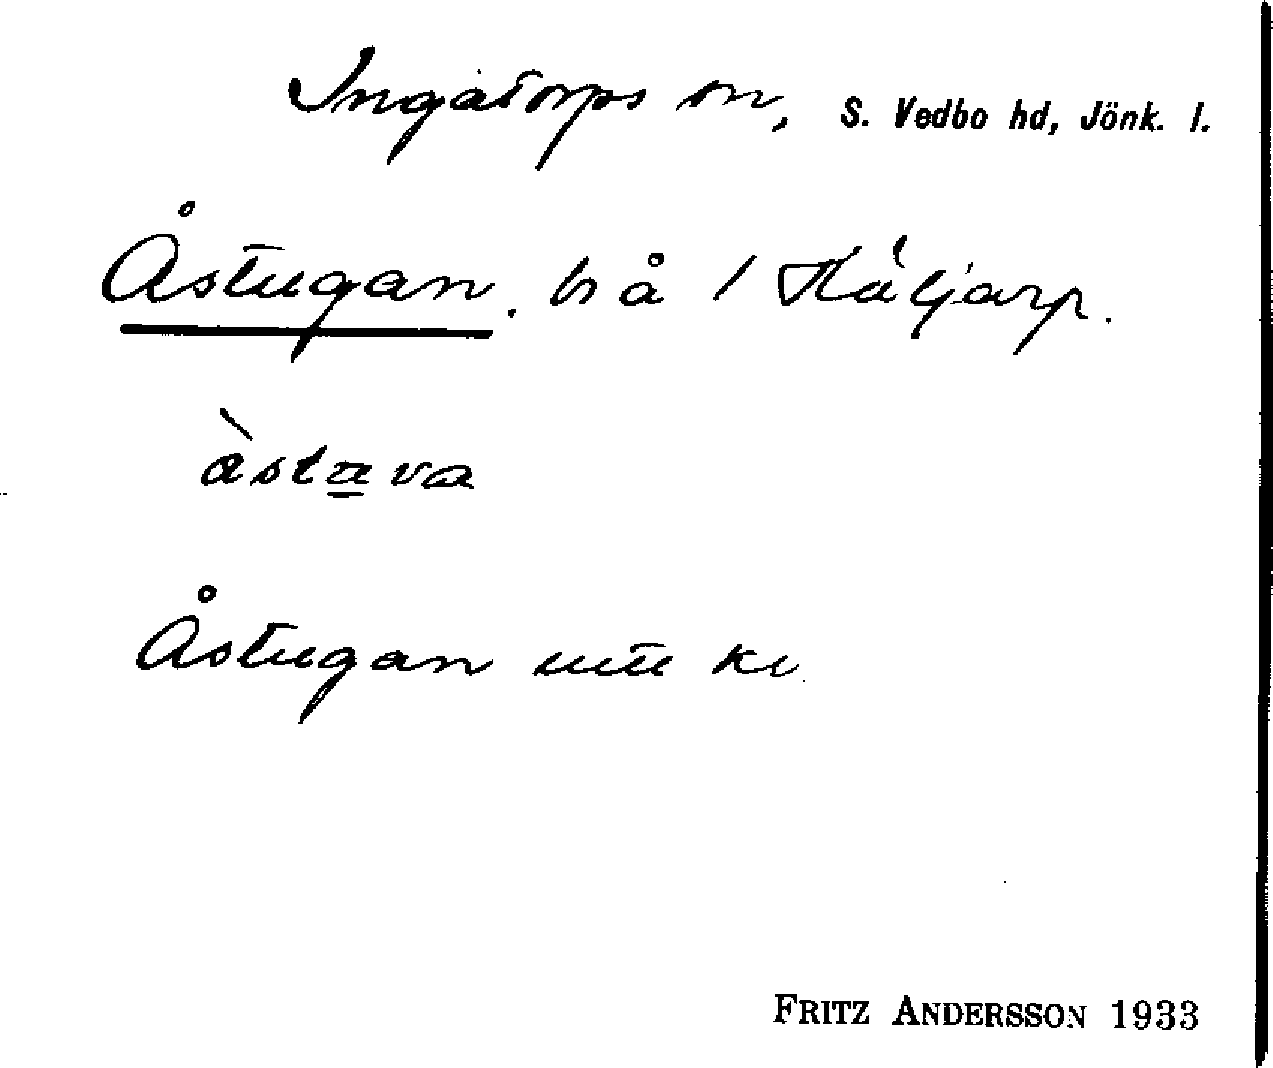 Ingatorps sn, S. Vedbo hd, Jönk. l.
Åstugan. b å 1 Häljarp.
àstuva
Åstugan utu kv
FRITZ ANDERSSON 1933